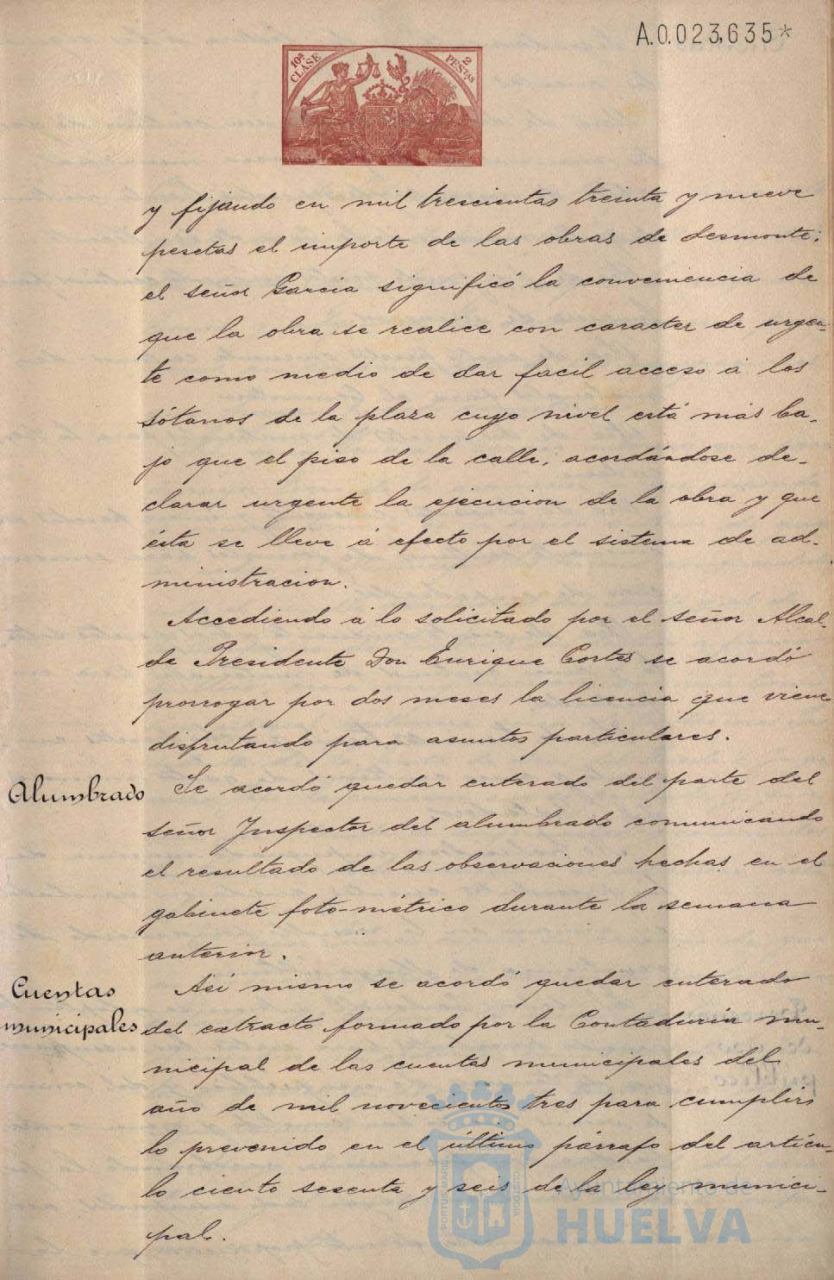 A.0.023,635*
10ª CLASE
2 PESTAS
y fijando en mil trescientas treinta y nueve
pesetas el importe de las obras de desmonte;
el señor Garcia significó la conveniencia de
que la obra se realice con caracter de urgen-
te como medio de dar facil acceso á los
sótanos de la plaza cuyo nivel está más ba-
jo que el piso de la calle, acordándose de-
clarar urgente la ejecucion de la obra y que
ésta se lleve á efecto por el sistema de ad-
ministracion.
Accediendo á lo solicitado por el señor Alcal-
de Presidente Don Enrique Cortes se acordó
prorrogar por dos meses la licencia que viene
disfrutando para asuntos particulares.
Alumbrado
Se acordó quedar enterado del parte del
señor Inspector del alumbrado comunicando
el resultado de las observaciones hechas en el
gabinete foto-métrico durante la semana
anterior.
Cuentas
municipales
Así mismo se acordó quedar enterado
del extracto formado por la Contaduría mu-
nicipal de las cuentas municipales del
año de mil novecientos tres para cumplir
lo prevenido en el último párrafo del artícu-
lo ciento sesenta y seis de la ley munici-
pal.
Ayuntamiento de
HUELVA